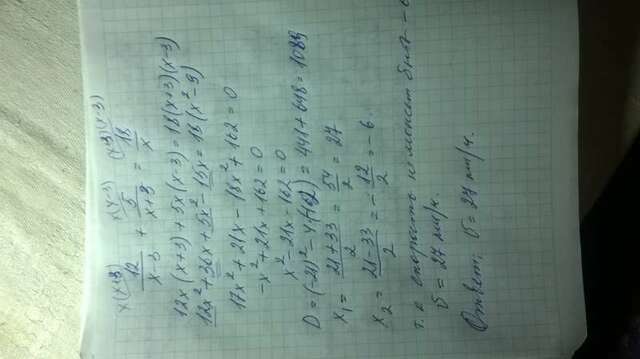 x(x+3) x(x-3) (x+3)(x-3)
12/(x-3) + 5/(x+3) = 18/x
12x(x+3) + 5x(x-3) = 18(x+3)(x-3)
12x² + 36x + 5x² - 15x = 18(x² - 9)
17x² + 21x - 18x² + 162 = 0
-x² + 21x + 162 = 0
x² - 21x - 162 = 0
D = (-21)² - 4·(-162) = 441 + 648 = 1089
x₁ = (21+33)/2 = 54/2 = 27
x₂ = (21-33)/2 = -12/2 = -6.
т.к скорость не может быть -6
v = 27 км/ч.
Ответ: v = 27 км/ч.